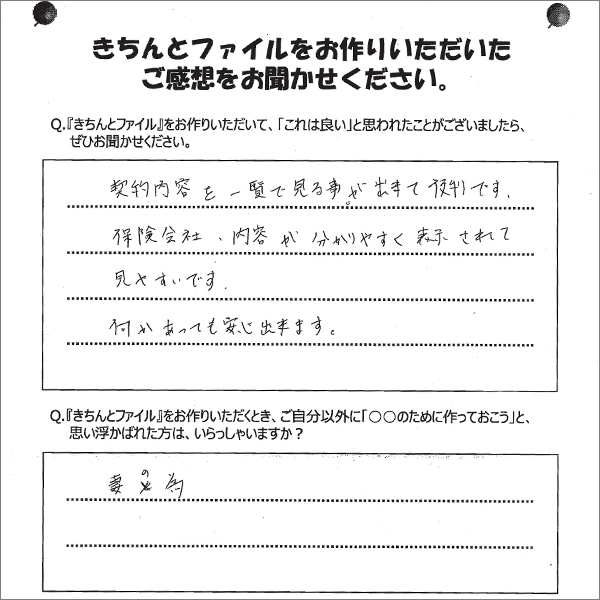 きちんとファイルをお作りいただいた
ご感想をお聞かせください。
Q.『きちんとファイル』をお作りいただいて、「これは良い」と思われたことがございましたら、
ぜひお聞かせください。
契約内容を一覧で見る事が出来て便利です。
保険会社、内容が分かりやすく表示されて
見やすいです。
何かあっても安心出来ます。
Q.『きちんとファイル』をお作りいただくとき、ご自分以外に「○○のために作っておこう」と、
思い浮かばれた方は、いらっしゃいますか？
妻の為